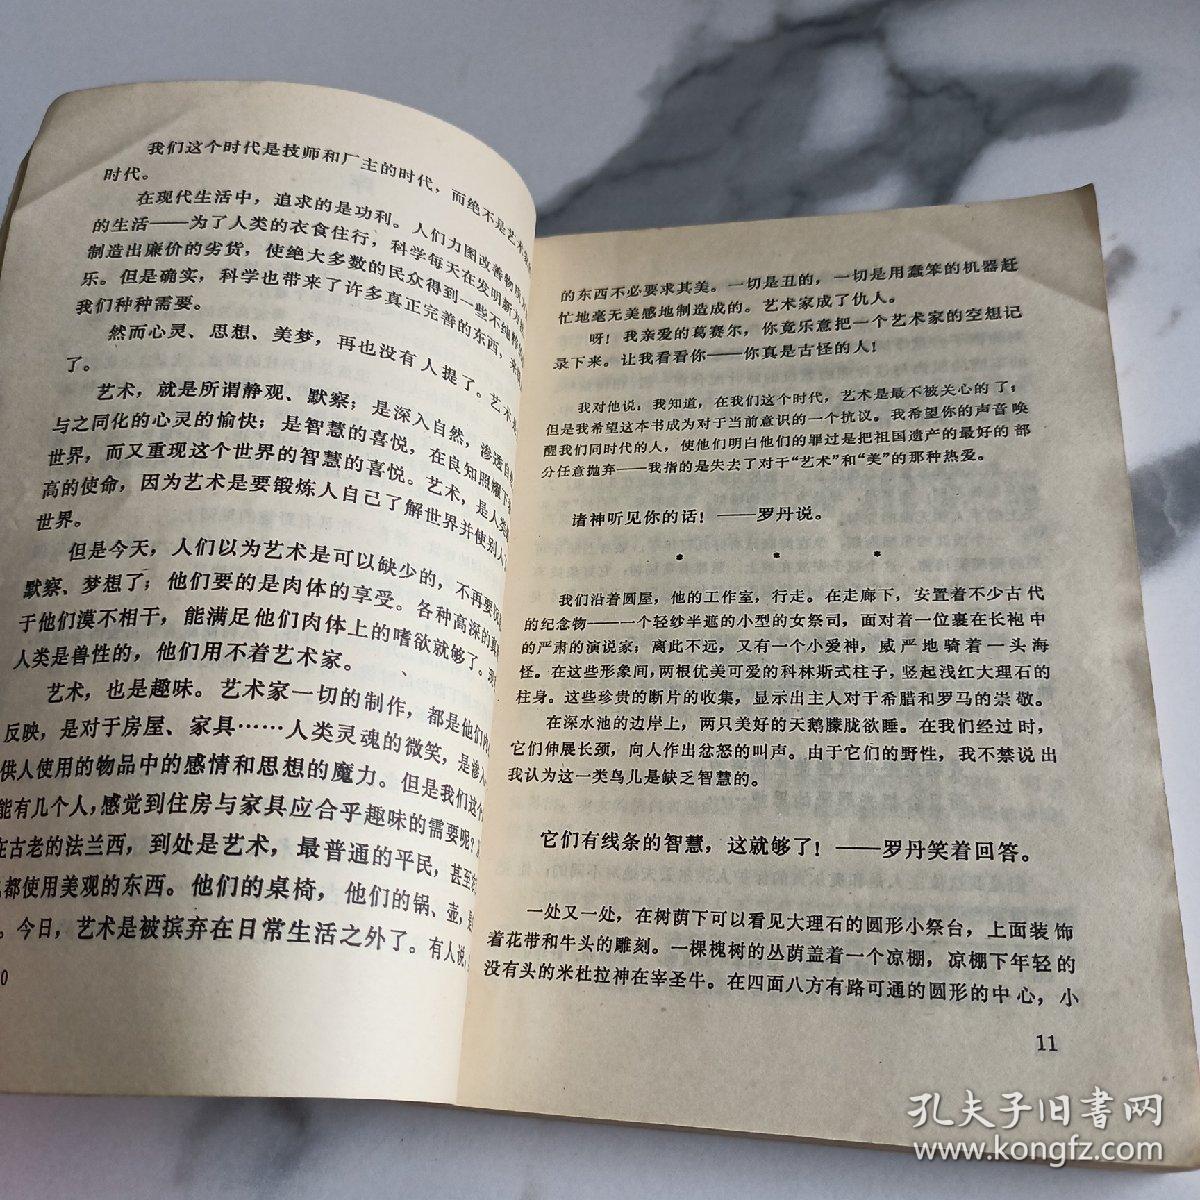 我们这个时代是技师和厂主的时代，而绝不是艺术
时代。
在现代生活中，追求的是功利。人们力图改善物质
的生活——为了人类的衣食住行，科学每天在发明新
制造出廉价的劣货，使绝大多数的民众得到一些不纯粹的
乐。但是确实，科学也带来了许多真正完善的东西，来
我们种种需要。
然而心灵、思想、美梦，再也没有人提了。艺术
了。
艺术，就是所谓静观、默察；是深入自然，渗透自
与之同化的心灵的愉快；是智慧的喜悦，在良知照耀下
世界，而又重现这个世界的智慧的喜悦。艺术，是人类
高的使命，因为艺术是要锻炼人自己了解世界并使别人
世界。
但是今天，人们以为艺术是可以缺少的，不再要
默察、梦想了；他们要的是肉体的享受。各种高深的
于他们漠不相干，能满足他们肉体上的嗜欲就够了。
人类是兽性的，他们用不着艺术家。
艺术，也是趣味。艺术家一切的制作，都是他们
反映，是对于房屋、家具……人类灵魂的微笑，是渗
供人使用的物品中的感情和思想的魔力。但是我们这个
能有几个人，感觉到住房与家具应合乎趣味的需要呢？
在古老的法兰西，到处是艺术，最普通的平民，甚至
都使用美观的东西。他们的桌椅，他们的锅、壶，是
。今日，艺术是被摈弃在日常生活之外了。有人说，
0
的东西不必要求其美。一切是丑的，一切是用蠢笨的机器赶
忙地毫无美感地制造成的。艺术家成了仇人。
呀！我亲爱的葛赛尔，你竟乐意把一个艺术家的空想记
录下来。让我看看你——你真是古怪的人！
我对他说：我知道，在我们这个时代，艺术是最不被关心的了；
但是我希望这本书成为对于当前意识的一个抗议。我希望你的声音唤
醒我们同时代的人，使他们明白他们的罪过是把祖国遗产的最好的部
分任意抛弃——我指的是失去了对于“艺术”和“美”的那种热爱。
诸神听见你的话！——罗丹说。
* * *
我们沿着圆屋，他的工作室，行走。在走廊下，安置着不少古代
的纪念物——一个轻纱半遮的小型的女祭司，面对着一位裹在长袍中
的严肃的演说家；离此不远，又有一个小爱神，威严地骑着一头海
怪。在这些形象间，两根优美可爱的科林斯式柱子，竖起浅红大理石的
柱身。这些珍贵的断片的收集，显示出主人对于希腊和罗马的崇敬。
在深水池的边岸上，两只美好的天鹅朦胧欲睡。在我们经过时，
它们伸展长颈，向人作出忿怒的叫声。由于它们的野性，我不禁说出
我认为这一类鸟儿是缺乏智慧的。
它们有线条的智慧，这就够了！——罗丹笑着回答。
一处又一处，在树荫下可以看见大理石的圆形小祭台，上面装饰
着花带和牛头的雕刻。一棵槐树的丛荫盖着一个凉棚，凉棚下年轻的
没有头的米杜拉神在宰圣牛。在四面八方有路可通的圆形的中心，小
11
孔夫子旧书网
www.kongfz.com